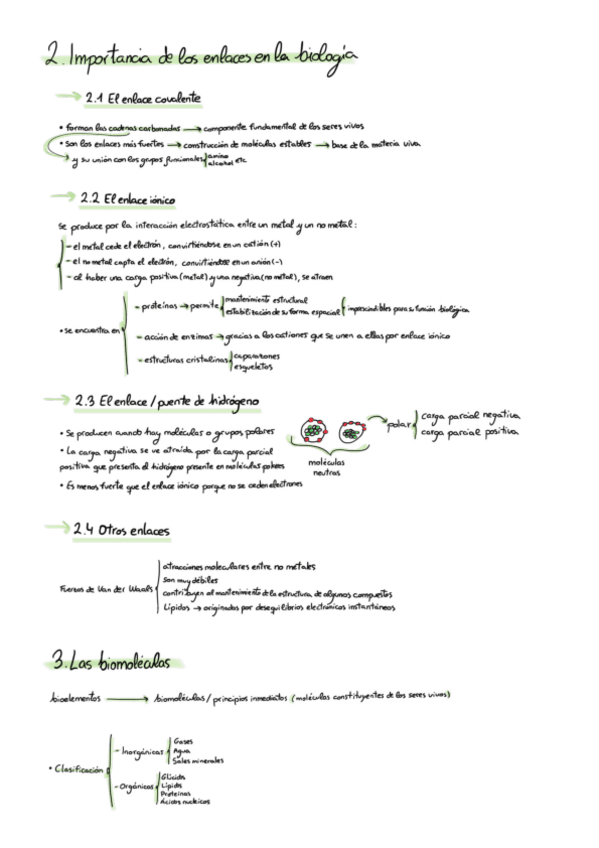 2. Importancia de los enlaces en la biología
→ 2.1 El enlace covalente
• forman las cadenas carbonadas → componente fundamental de los seres vivos
• Son los enlaces más fuertes → construcción de moléculas estables → base de la materia viva
y su unión con los grupos funcionales amino
alcohol etc
→ 2.2 El enlace iónico
Se produce por la interacción electrostática entre un metal y un no metal:
- el metal cede el electrón, convirtiéndose en un catión (+)
- el no metal capta el electrón, convirtiéndose en un anión (-)
- al haber una carga positiva (metal) y una negativa (no metal), se atraen
• se encuentra en
- proteínas → permite
mantenimiento estructural
estabilización de su forma espacial
imprescindibles para su función biológica
- acción de enzimas → gracias a los cationes que se unen a ellas por enlace iónico
- estructuras cristalinas
caparazones
esqueletos
→ 2.3 El enlace / puente de hidrógeno
• Se producen cuando hay moléculas o grupos polares
• La carga negativa se ve atraída por la carga parcial
positiva que presenta el hidrógeno presente en moléculas polares
• Es menos fuerte que el enlace iónico porque no se ceden electrones
moléculas
neutras
polar
carga parcial negativa
carga parcial positiva
→ 2.4 Otros enlaces
Fuerzas de Van der Waals
atracciones moleculares entre no metales
Son muy débiles
contribuyen al mantenimiento de la estructura de algunos compuestos
Lípidos → originados por desequilibrios electrónicos instantáneos
3. Las biomoléculas
bioelementos → biomoléculas / principios inmediatos (moléculas constituyentes de los seres vivos)
• Clasificación
- Inorgánicas
Gases
Agua
Sales minerales
- Orgánicas
Glúcidos
Lípidos
Proteínas
Ácidos nucleicos